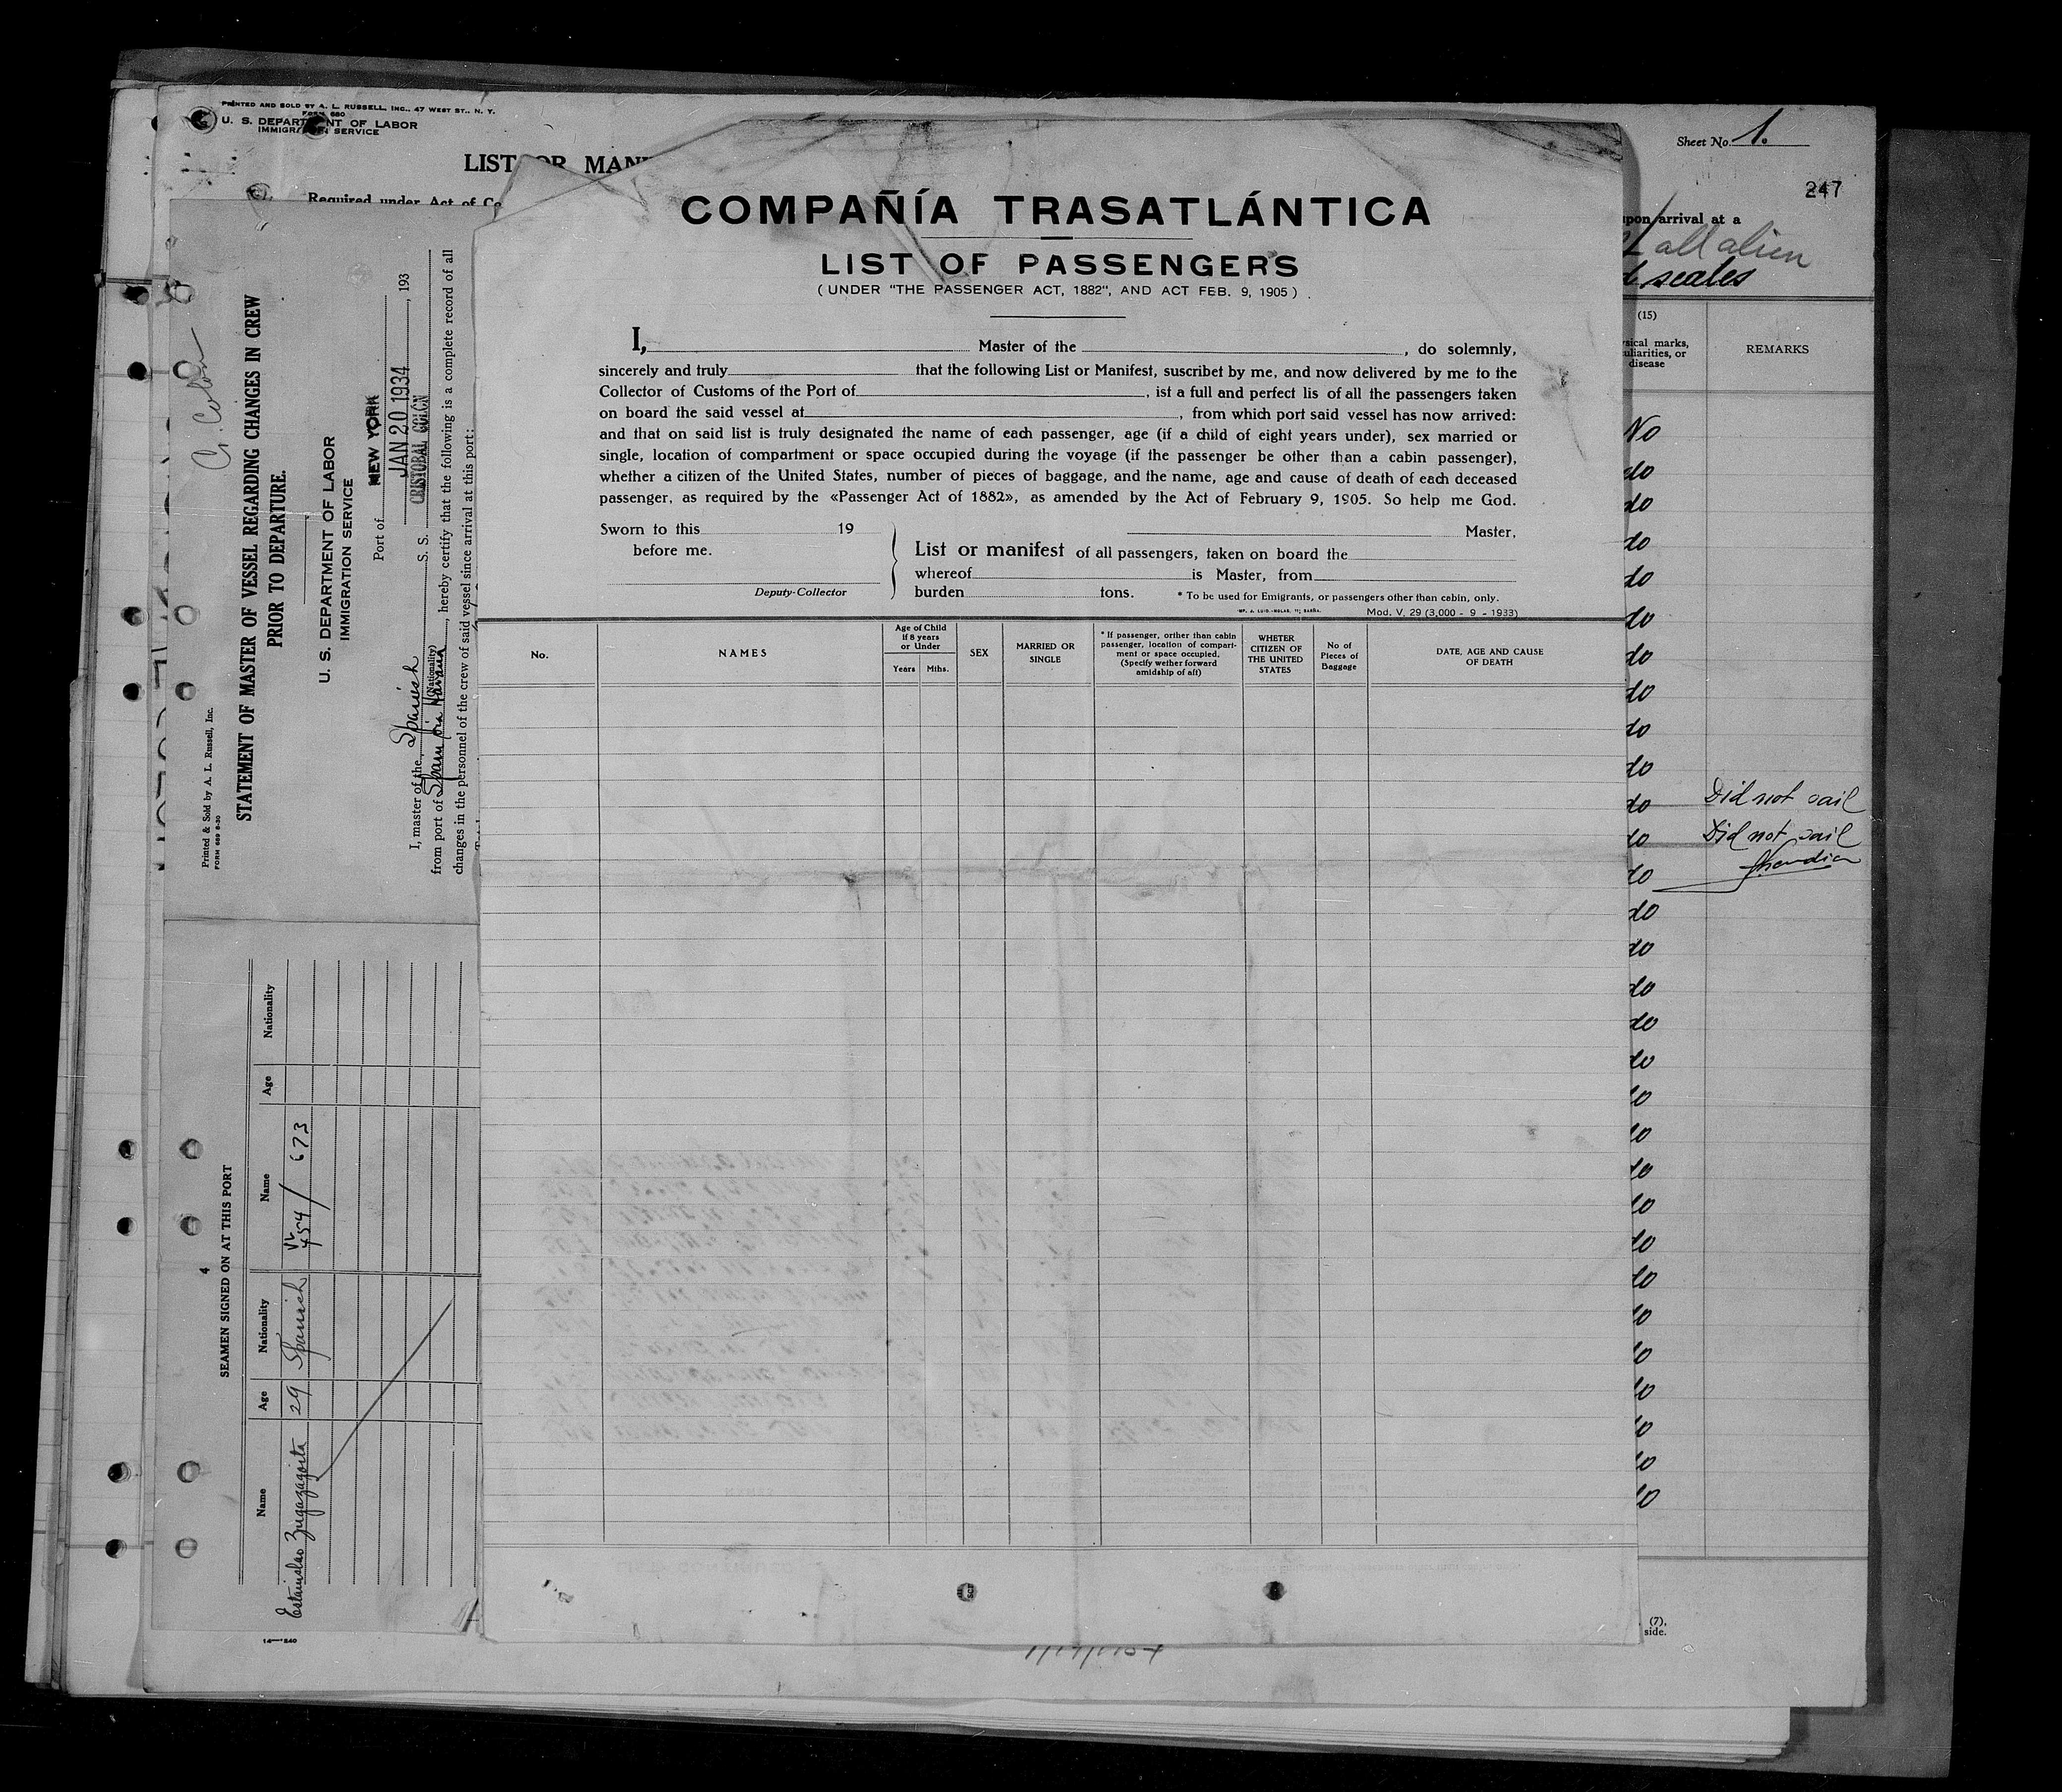 PRINTED AND SOLD BY A. L. RUSSELL, INC., 47 WEST ST., N. Y.
FORM 680
U. S. DEPARTMENT OF LABOR
IMMIGRATION SERVICE
LIST OR MANI
Required under Act of Co
Sheet No. 1.
247
upon arrival at a
all alien
scales
(15)
sical marks,
uliarities, or
disease
REMARKS
No
do
do
do
do
do
do
do
do
do
do Did not sail
do Did not sail
do
do
do
do
do
do
do
do
do
do
do
do
do
do
do
do
do
do
(7),
side.
COMPAÑÍA TRASATLÁNTICA
LIST OF PASSENGERS
( UNDER "THE PASSENGER ACT, 1882", AND ACT FEB. 9, 1905 )
I, Master of the , do solemnly,
sincerely and truly that the following List or Manifest, suscribet by me, and now delivered by me to the
Collector of Customs of the Port of , ist a full and perfect lis of all the passengers taken
on board the said vessel at , from which port said vessel has now arrived:
and that on said list is truly designated the name of each passenger, age (if a child of eight years under), sex married or
single, location of compartment or space occupied during the voyage (if the passenger be other than a cabin passenger),
whether a citizen of the United States, number of pieces of baggage, and the name, age and cause of death of each deceased
passenger, as required by the «Passenger Act of 1882», as amended by the Act of February 9, 1905. So help me God.
Sworn to this 19
before me.
Deputy-Collector
Master,
List or manifest of all passengers, taken on board the
whereof is Master, from
burden tons. * To be used for Emigrants, or passengers other than cabin, only.
Mod. V. 29 (3,000 - 9 - 1933)
No.
NAMES
Age of Child
if 8 years
or Under
Years Mths.
SEX
MARRIED OR
SINGLE
* If passenger, orither than cabin
passenger, location of compart-
ment or space occupied.
(Specify wether forward
amidship of aft)
WHETER
CITIZEN OF
THE UNITED
STATES
No of
Pieces of
Baggage
DATE, AGE AND CAUSE
OF DEATH
C. Colon
Printed & Sold by A. L. Russell, Inc.
FORM 689 6-30
STATEMENT OF MASTER OF VESSEL REGARDING CHANGES IN CREW
PRIOR TO DEPARTURE.
U. S. DEPARTMENT OF LABOR
IMMIGRATION SERVICE
Port of NEW YORK
JAN 20 1934 , 193
I, master of the Spanish S. S. CRISTOBAL COLON
(Nationality)
from port of Spain via Havana , hereby certify that the following is a complete record of all
changes in the personnel of the crew of said vessel since arrival at this port:
4
SEAMEN SIGNED ON AT THIS PORT
Name Age Nationality Name Age Nationality
Estanislao Zugazagoita 29 Spanish 454/ 673
14—240